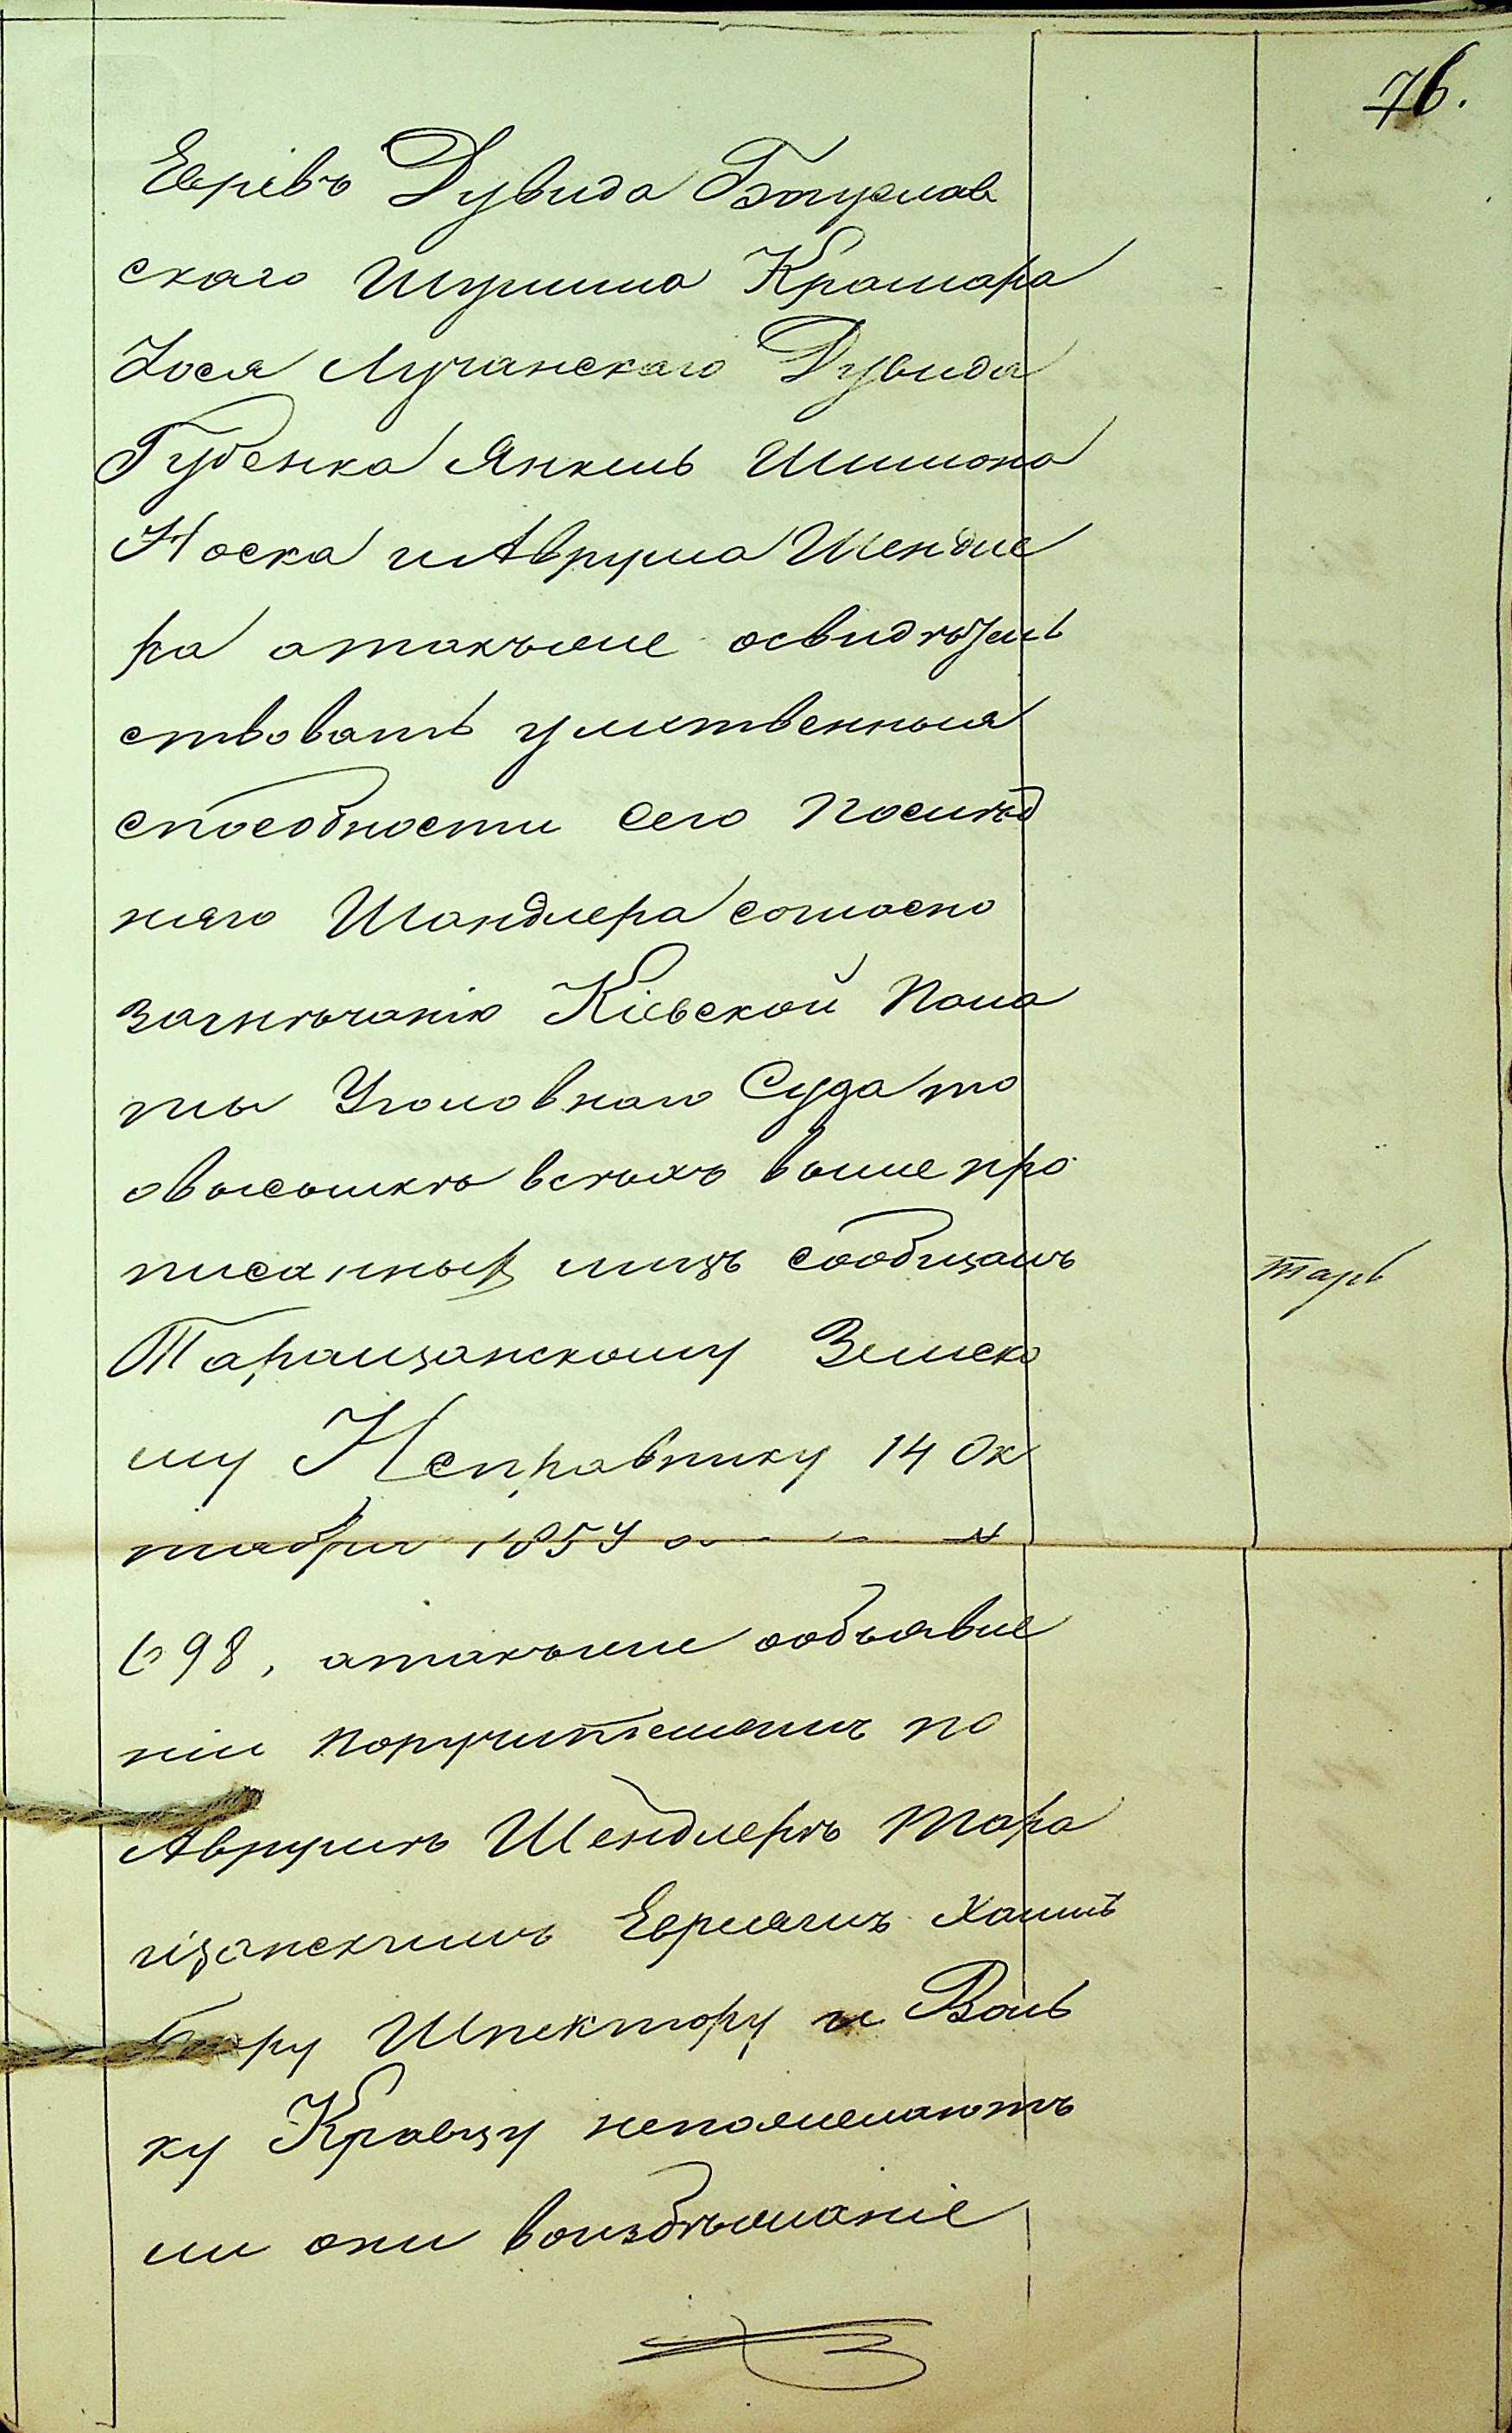 76.
Евреівъ Дувида Богуслав
скаго Шулима Крамара
Иося Лучанскаго Дувида
Губенка Янкель Шимона
Носка и Аврума Шендле
ра атакъже освидѣтель
ствовать умственныя
способности сего послѣд
няго Шандлера согласно
замѣчанію Кіевской Пала
ты Уголовнаго Суда то
овысылкѣ всѣхъ выше про
писанных лицъ сообщалъ
Таращанскому Земско
му Исправнику 14 Ок
тября 1854 а
698, атакъже обобъявле
ніи поручителямъ по
Аврумѣ Шендлерѣ Тара
щанскимъ Евреямъ Хаимъ
Беру Шпектору и Воль
ку Кравцу непожелаютъ
ли они воизбѣжаніе